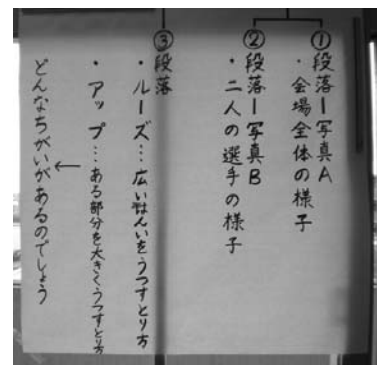 ①段落ー写真A
・会場全体の様子
②段落ー写真B
・二人の選手の様子
③段落
・ルーズ…広いはんいをうつすとり方
・アップ…ある部分を大きくうつすとり方
↓
どんなちがいがあるのでしょう